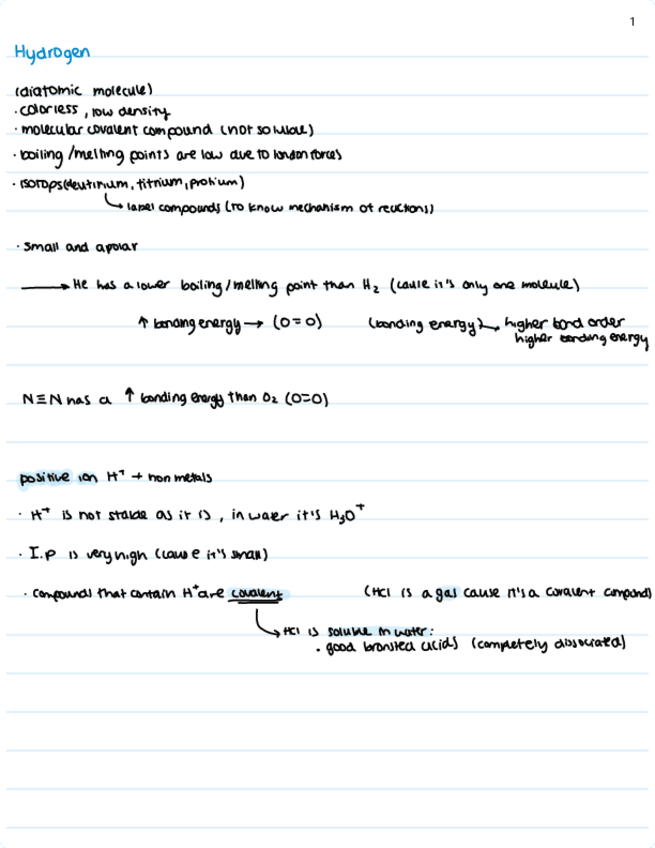 1
Hydrogen
(diatomic molecule)
· colorless, low density
· molecular covalent compound (not soluble)
· boiling/melting points are low due to london forces
· isotops(deutirium, titrium, protium)
↳ label compounds (to know mechanism of reactions)
· small and apolar
→ He has a lower boiling/melting point than H₂ (cause it's only one molecule)
↑ bonding energy → (O=O) (bonding energy) → higher bond order
higher bonding energy
N≡N has a ↑ bonding energy than O₂ (O=O)
positive ion H⁺ + non metals
· H⁺ is not stable as it is, in water it's H₃O⁺
· I.p is very high (cause it's small)
· compounds that contain H⁺ are covalent (HCl is a gas cause it's a covalent compound)
↳ HCl is soluble in water:
· good bronsted acids (completely dissociated)